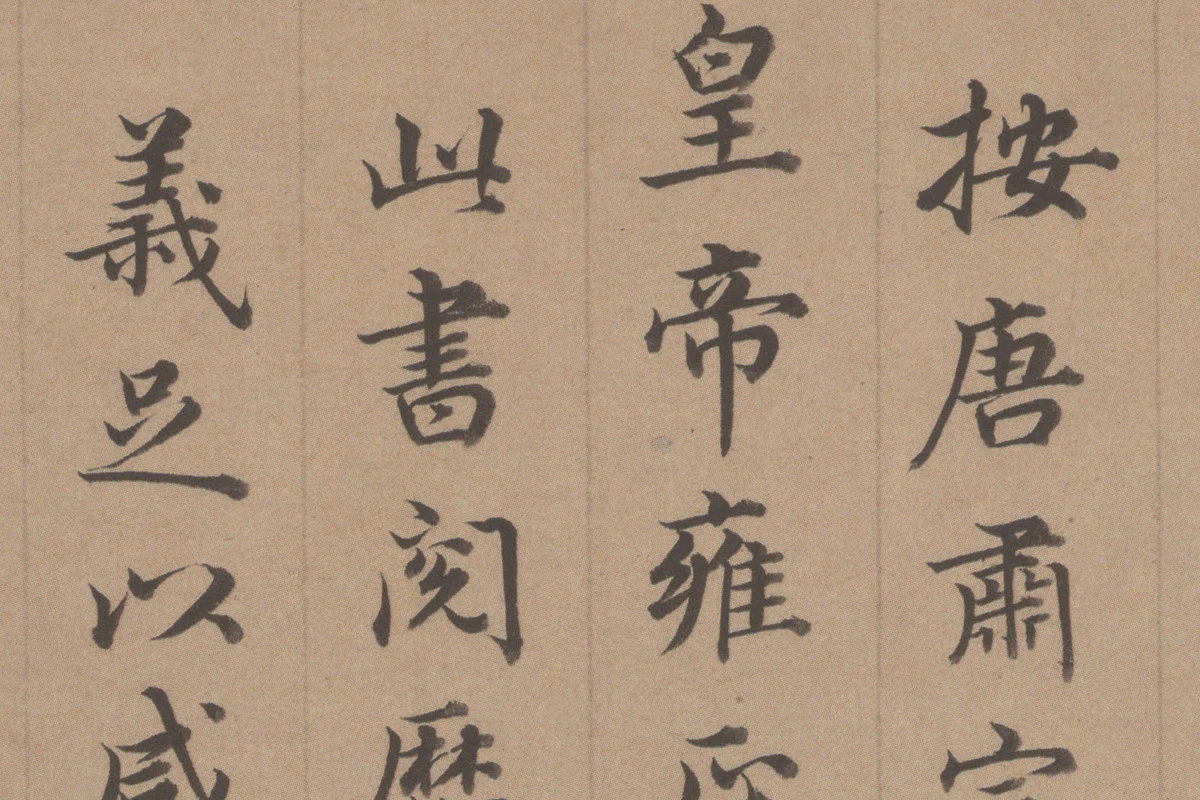 按唐肅宗
皇帝雍
此書閱歷
義足以感